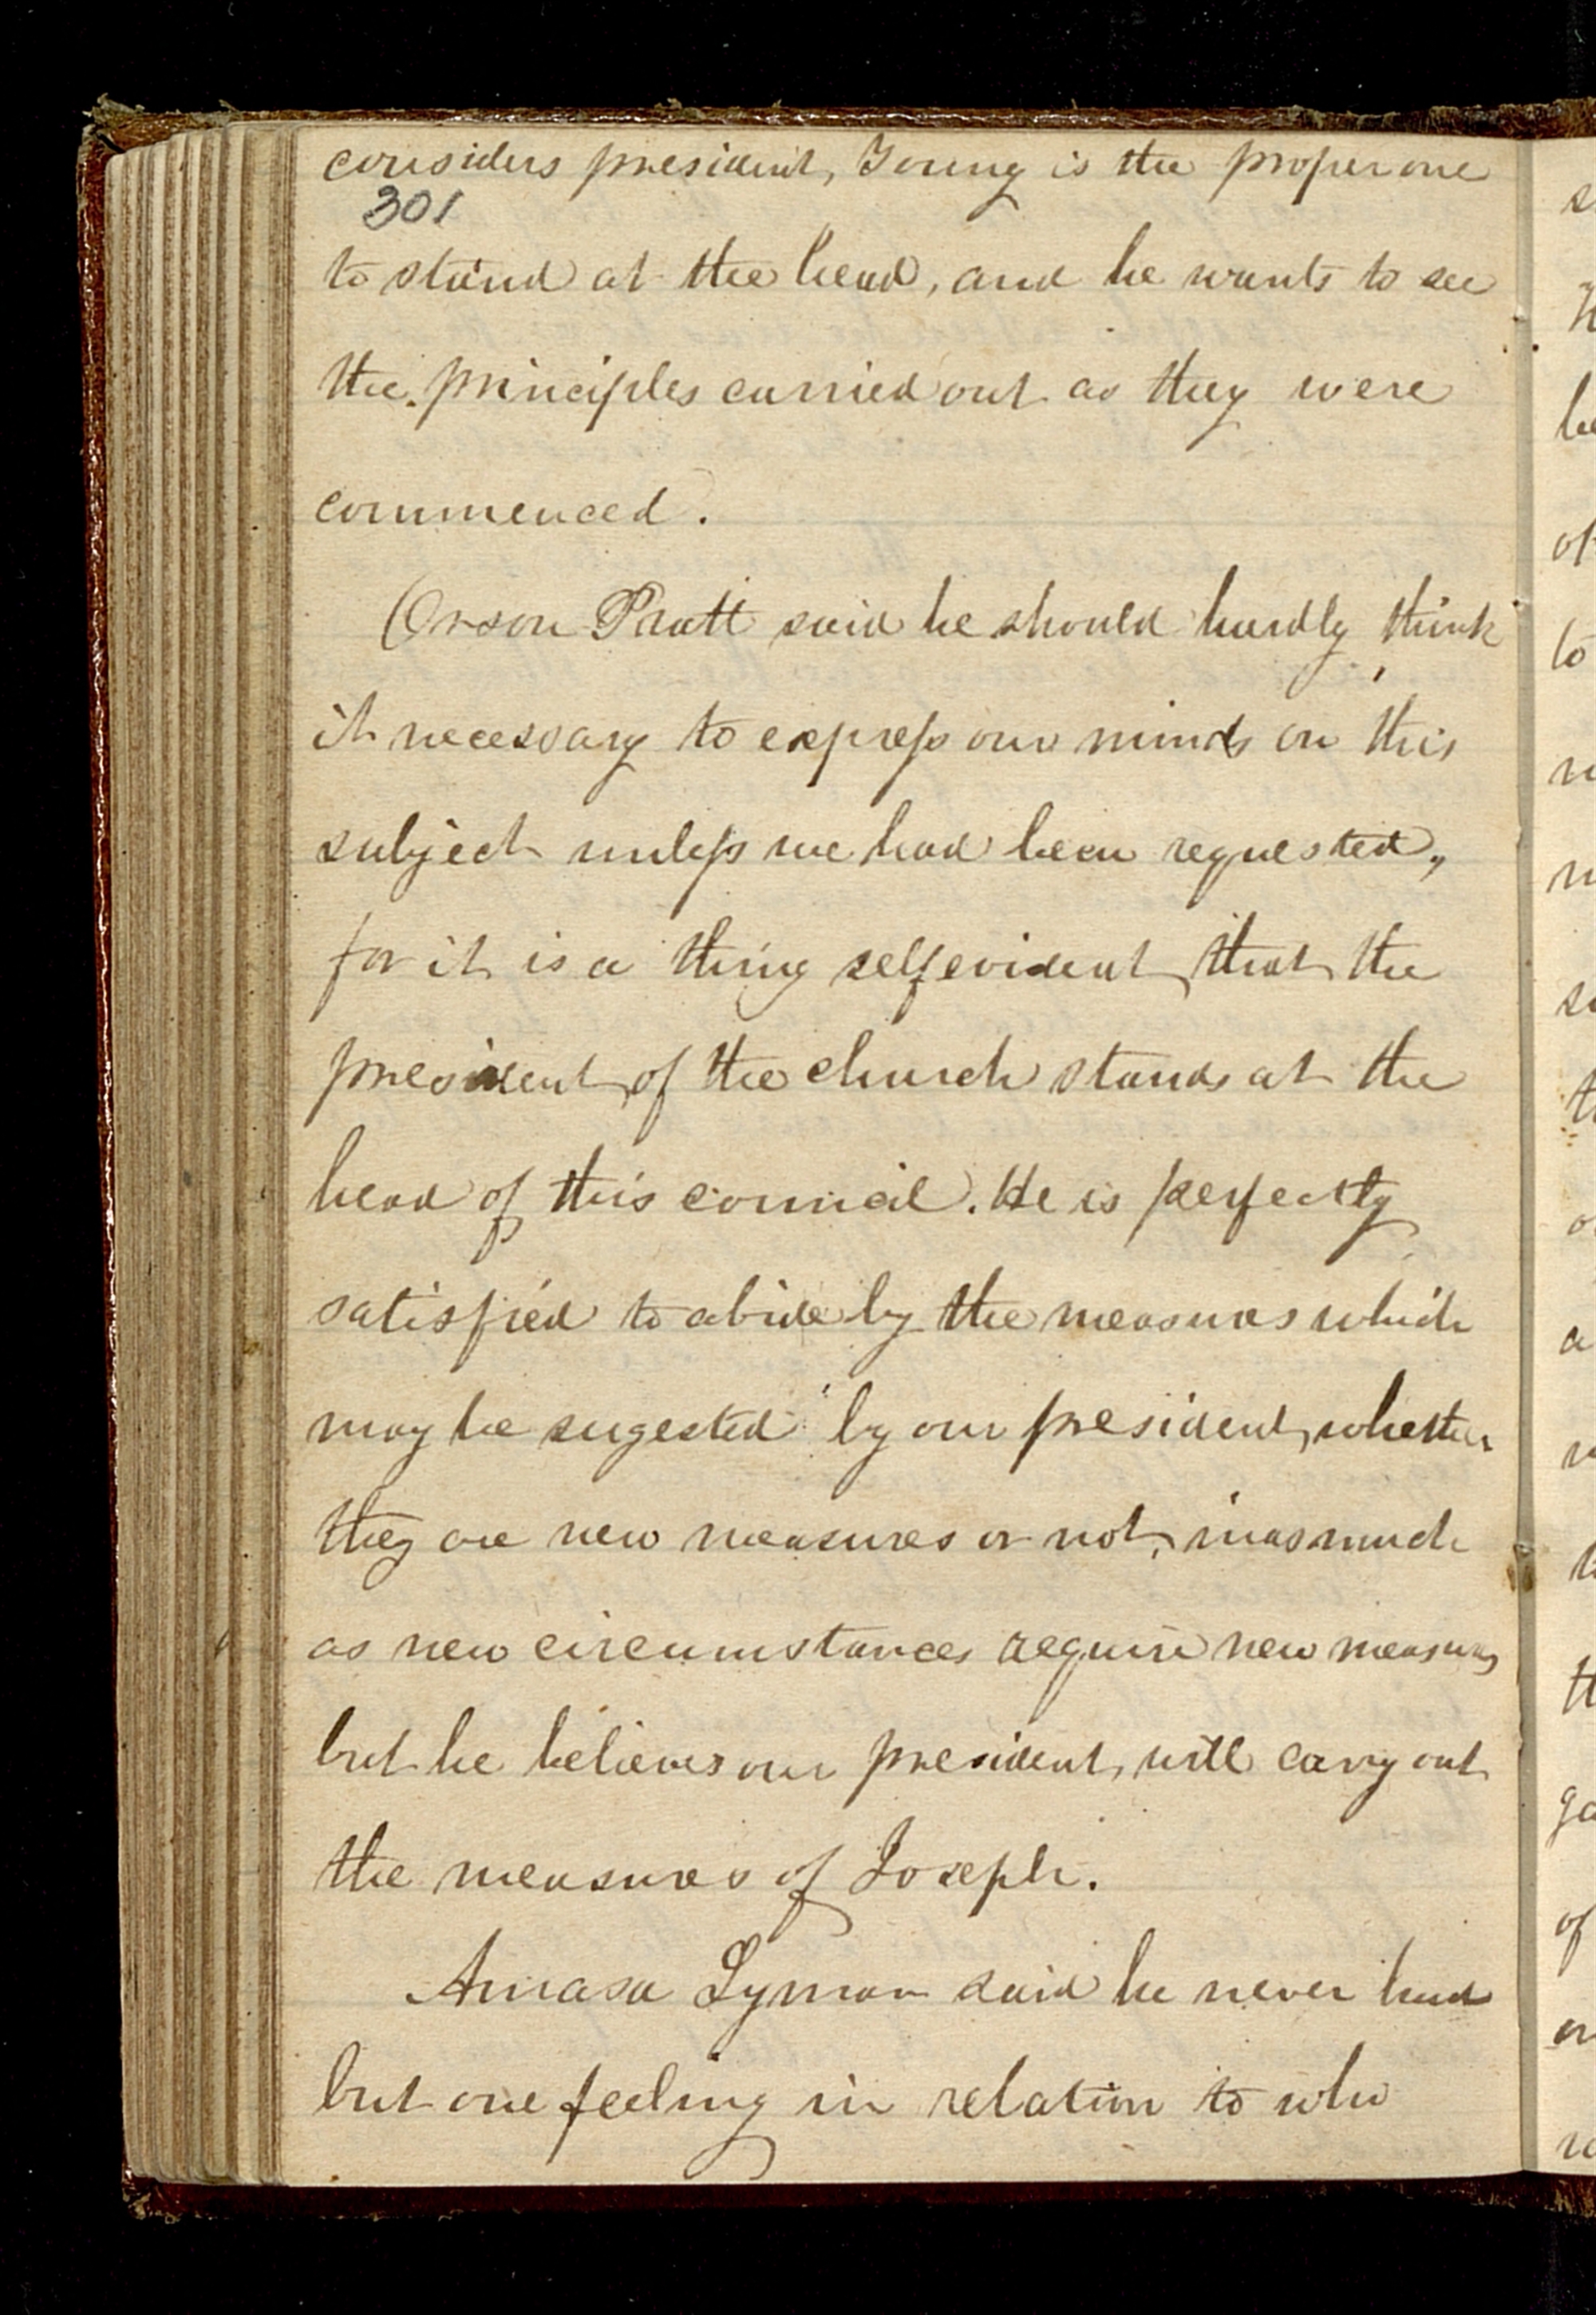 considers president, Young is the proper one
301
to stand at the head, and he wants to see
the principles carried out as they were
commenced.
Orson Pratt said he should hardly think
it necessary to express our minds on this
subject unless we had been requested,
for it is a thing self evident that the
president of the church stands at the
head of this council. He is perfectly
satisfied to abide by the measures which
may be sugested by our president, whether
they are new measures or not, inasmuch
as new circumstances require new measures
but he believes our president, will carry out
the measures of Joseph.
Amasa Lyman said he never had
but one feeling in relation to who